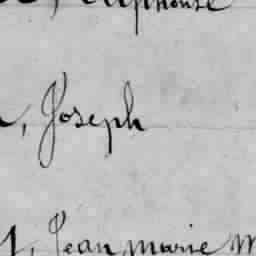 , Alphonse
, Joseph
, Jean marie